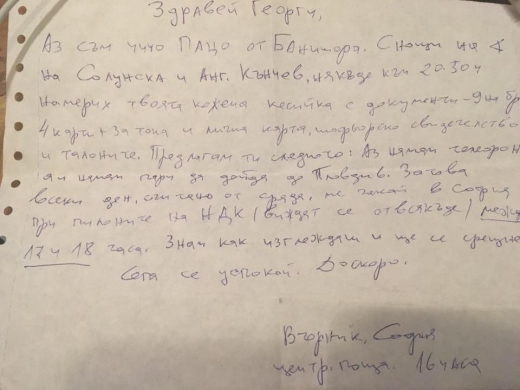 Здравей Георги,
Аз съм чичо Пацо от Банишора. Снощи на
на Солунска и Анг. Кънчев, някъде към 20.30ч
намерих твоята кожена кесийка с документи - 9ш бр
4 карти + за тока и лична карта, шофьорско свидетелство
и талоните. Предлагам ти следното: Аз нямам телефон
нямам пари да дойда до Пловдив. Затова
всеки ден, считано от сряда, ме чакай в София
при пилоните на НДК (виждат се отвсякъде) между
17 и 18 часа. Знам как изглеждаш и ще се срещнем
Сега се успокой. До скоро.
Вторник, София
центр. поща. 16 часа